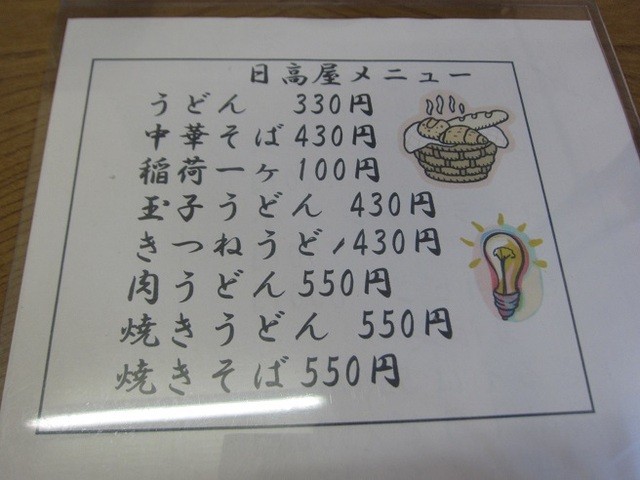 日高屋メニュー
うどん 330円
中華そば 430円
稲荷一ヶ 100円
玉子うどん 430円
きつねうどん 430円
肉うどん 550円
焼きうどん 550円
焼きそば 550円